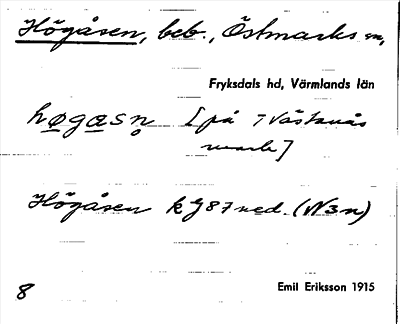 Högåsen, beb., Östmarks sn,
Fryksdals hd, Värmlands län
høgasn̥ [på 7 Västanås
mark]
Högåsen k J87 ned. (N3n)
8
Emil Eriksson 1915